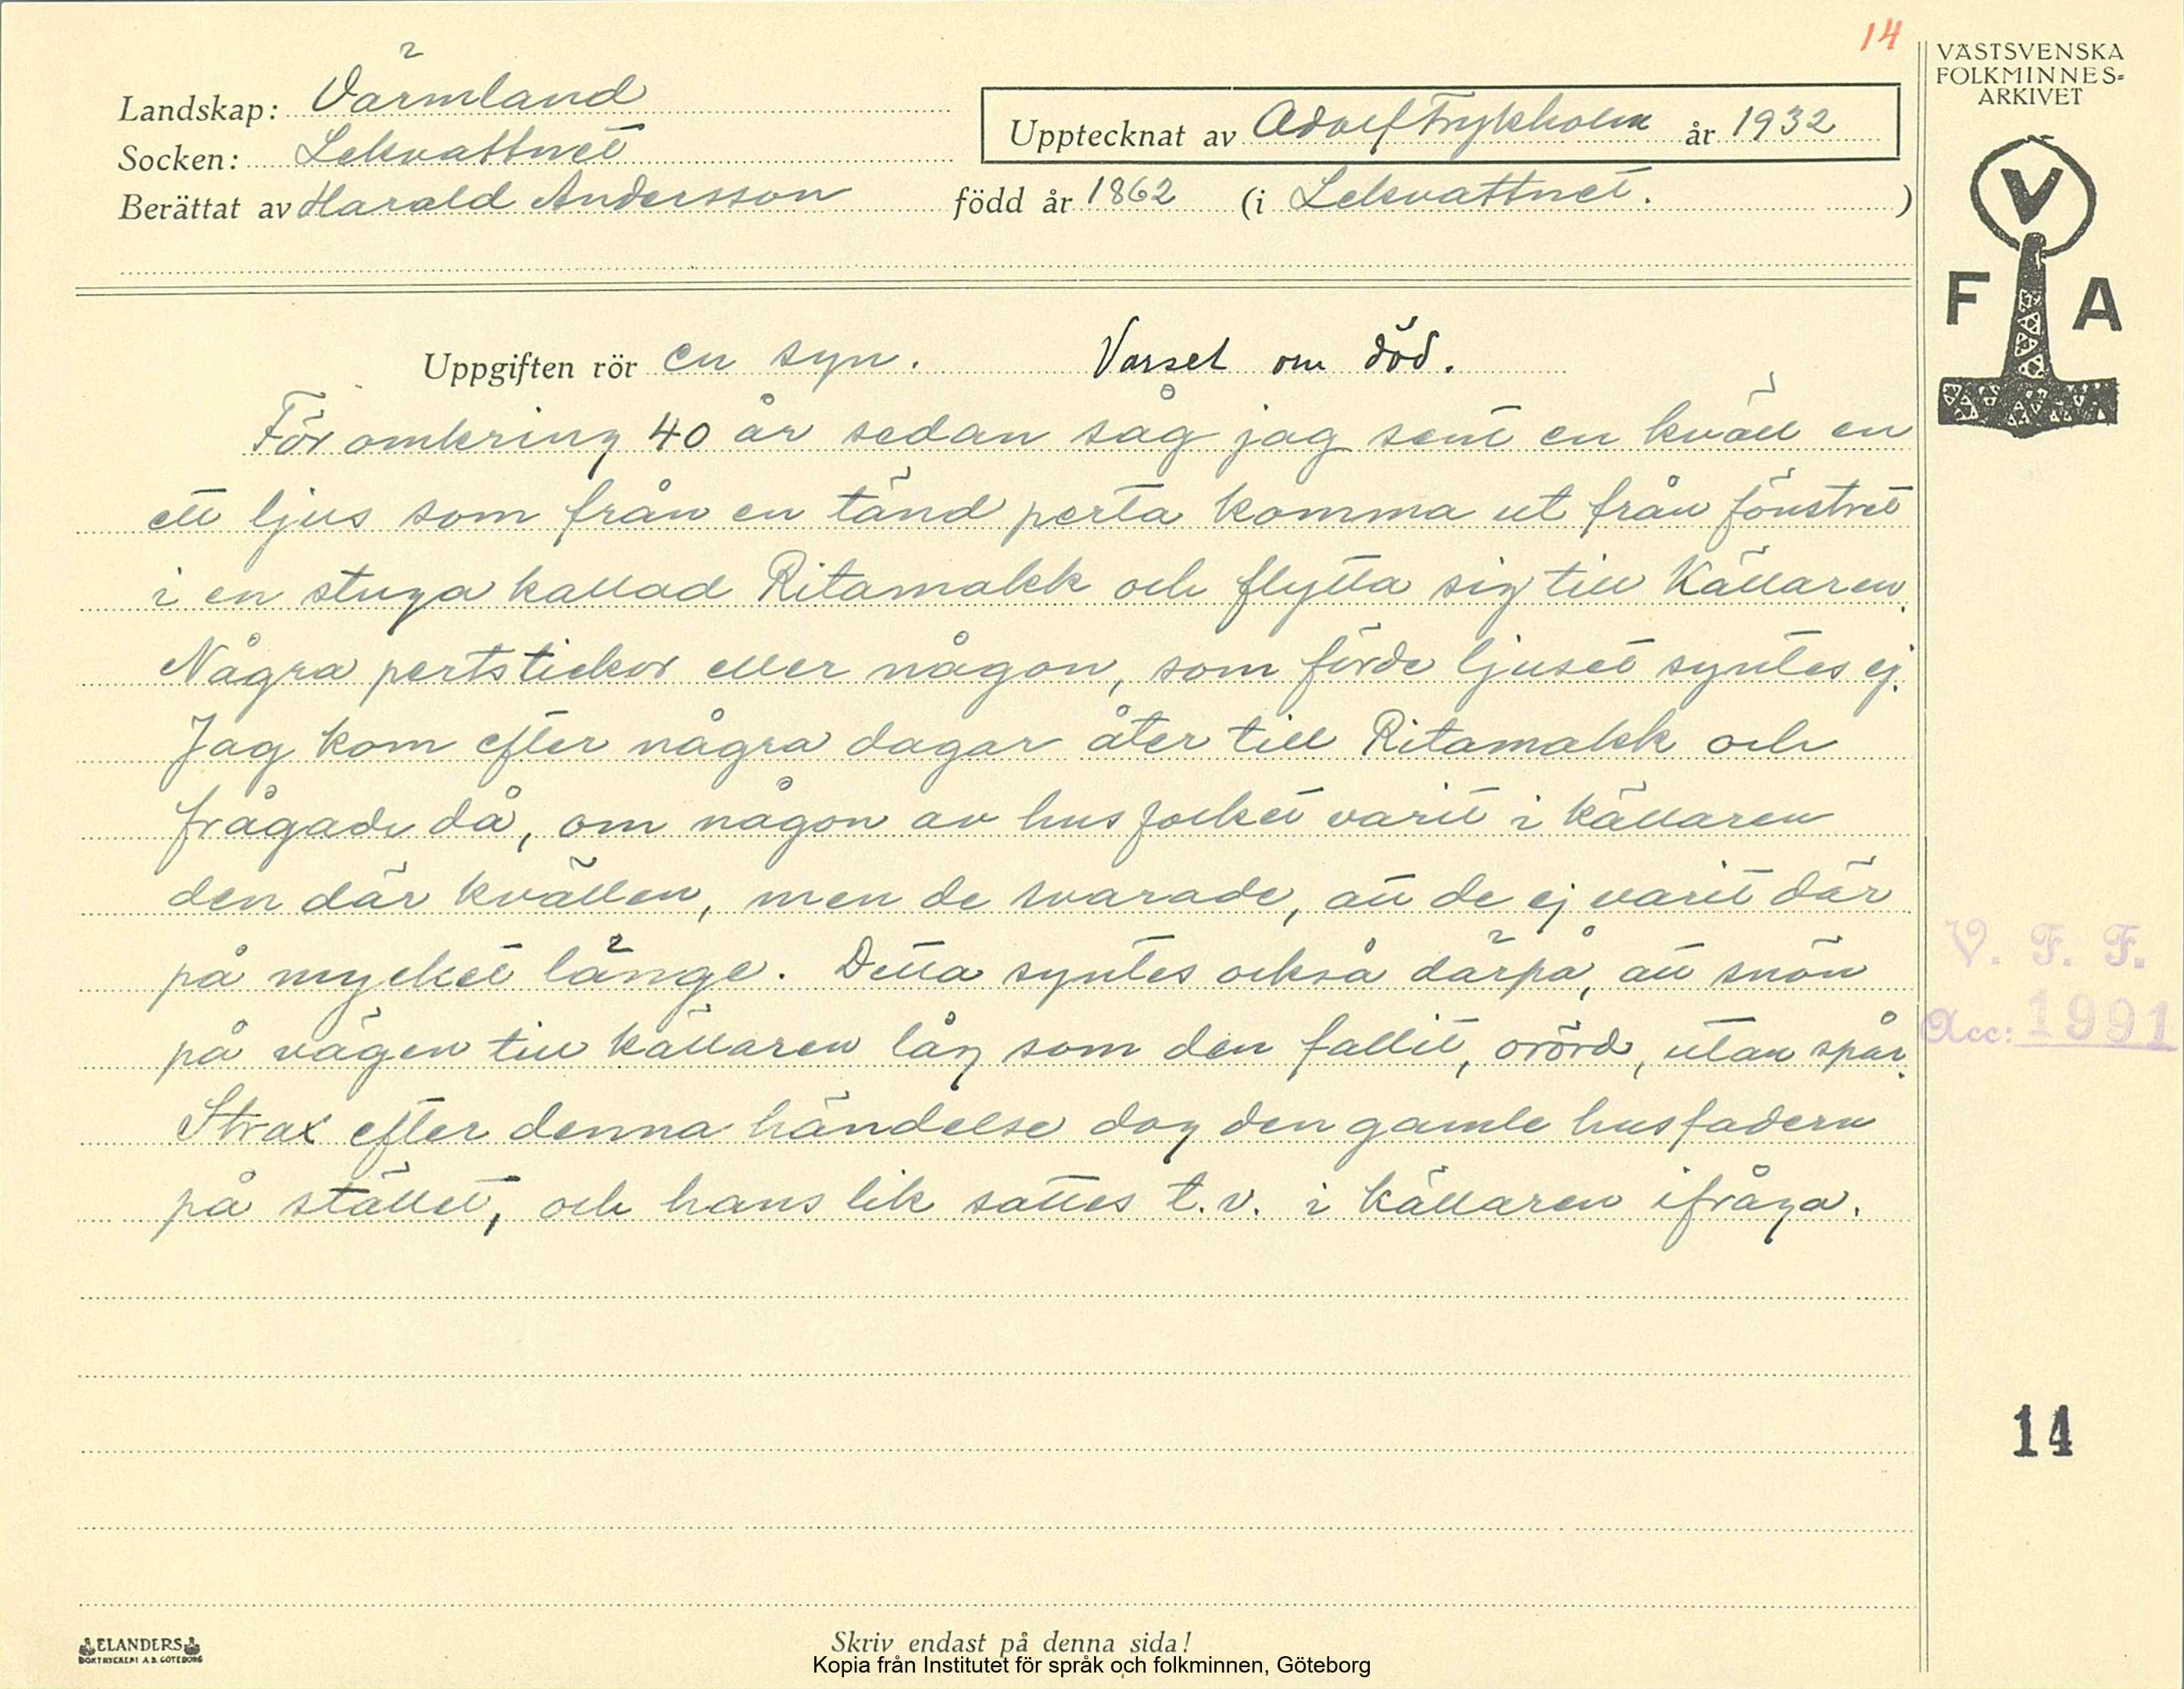 14
VÄSTSVENSKA
FOLKMINNES-
ARKIVET
Landskap: Värmland
Upptecknat av Adolf Frykholm år 1932
Socken: Lekvattnet
Berättat av Harald Andersson född år 1862 (i Lekvattnet.)
V
F A
Uppgiften rör en syn. Varsel om död.
För omkring 40 år sedan såg jag sent en kväll en
ett ljus som från en tänd perta komma ut från fönstret
i en stuga kallad Ritamakk och flytta sig till Källaren.
Några pertstickor eller någon, som förde ljuset syntes ej.
Jag kom efter några dagar åter till Ritamakk och
frågade då, om någon av husfolket varit i källaren
den där kvällen, men de svarade, att de ej varit där
på mycket länge. Detta syntes också därpå, att snön
på vägen till källaren låg som den fallit, orörd, utan spår.
Strax efter denna händelse dog den gamle husfadern
på stället, och hans lik sattes t.v. i källaren ifråga.
V. F. F.
Acc: 1991
14
ELANDERS
BOKTRYCKERI A.B. GÖTEBORG
Skriv endast på denna sida!
Kopia från Institutet för språk och folkminnen, Göteborg